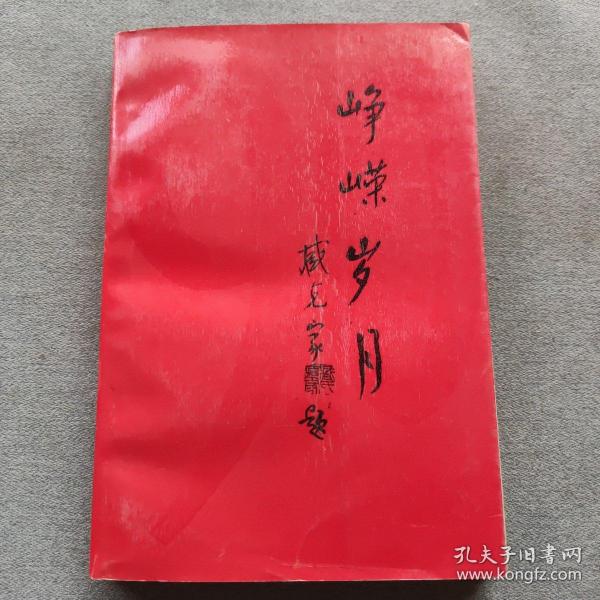 峥嵘岁月
臧克家
题
孔夫子旧书网
www.kongfz.com